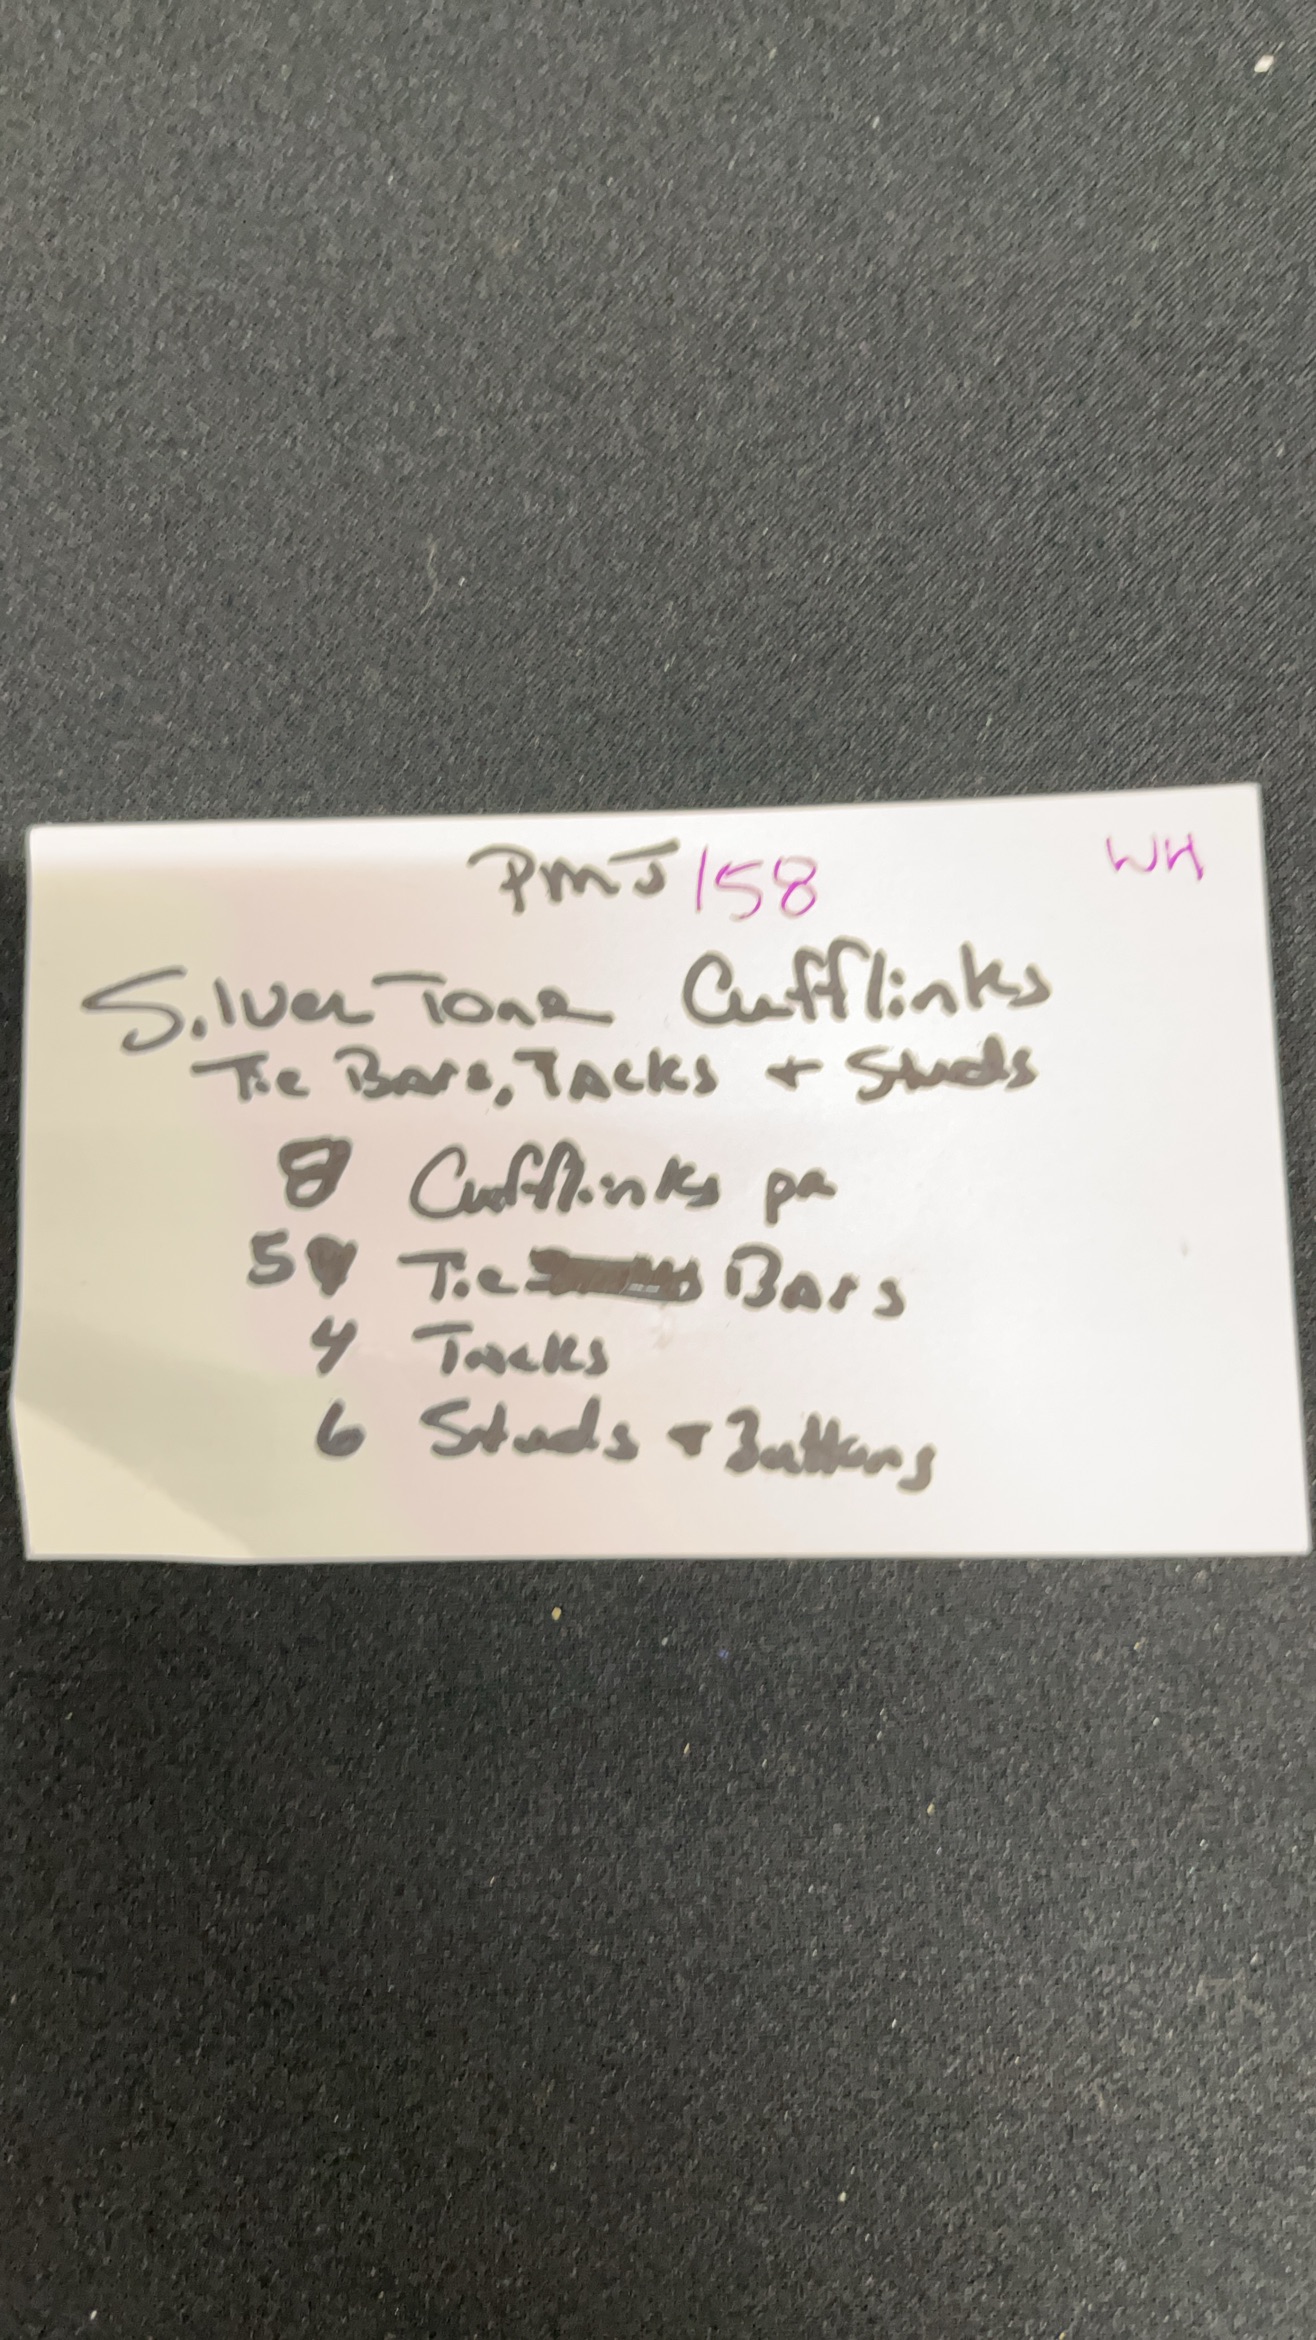 PMJ 158 WH
Silver Tone Cufflinks
Tie Bars, Tacks + Studs
8 Cufflinks pr
5 Tie Bars
4 Tacks
6 Studs + Buttons